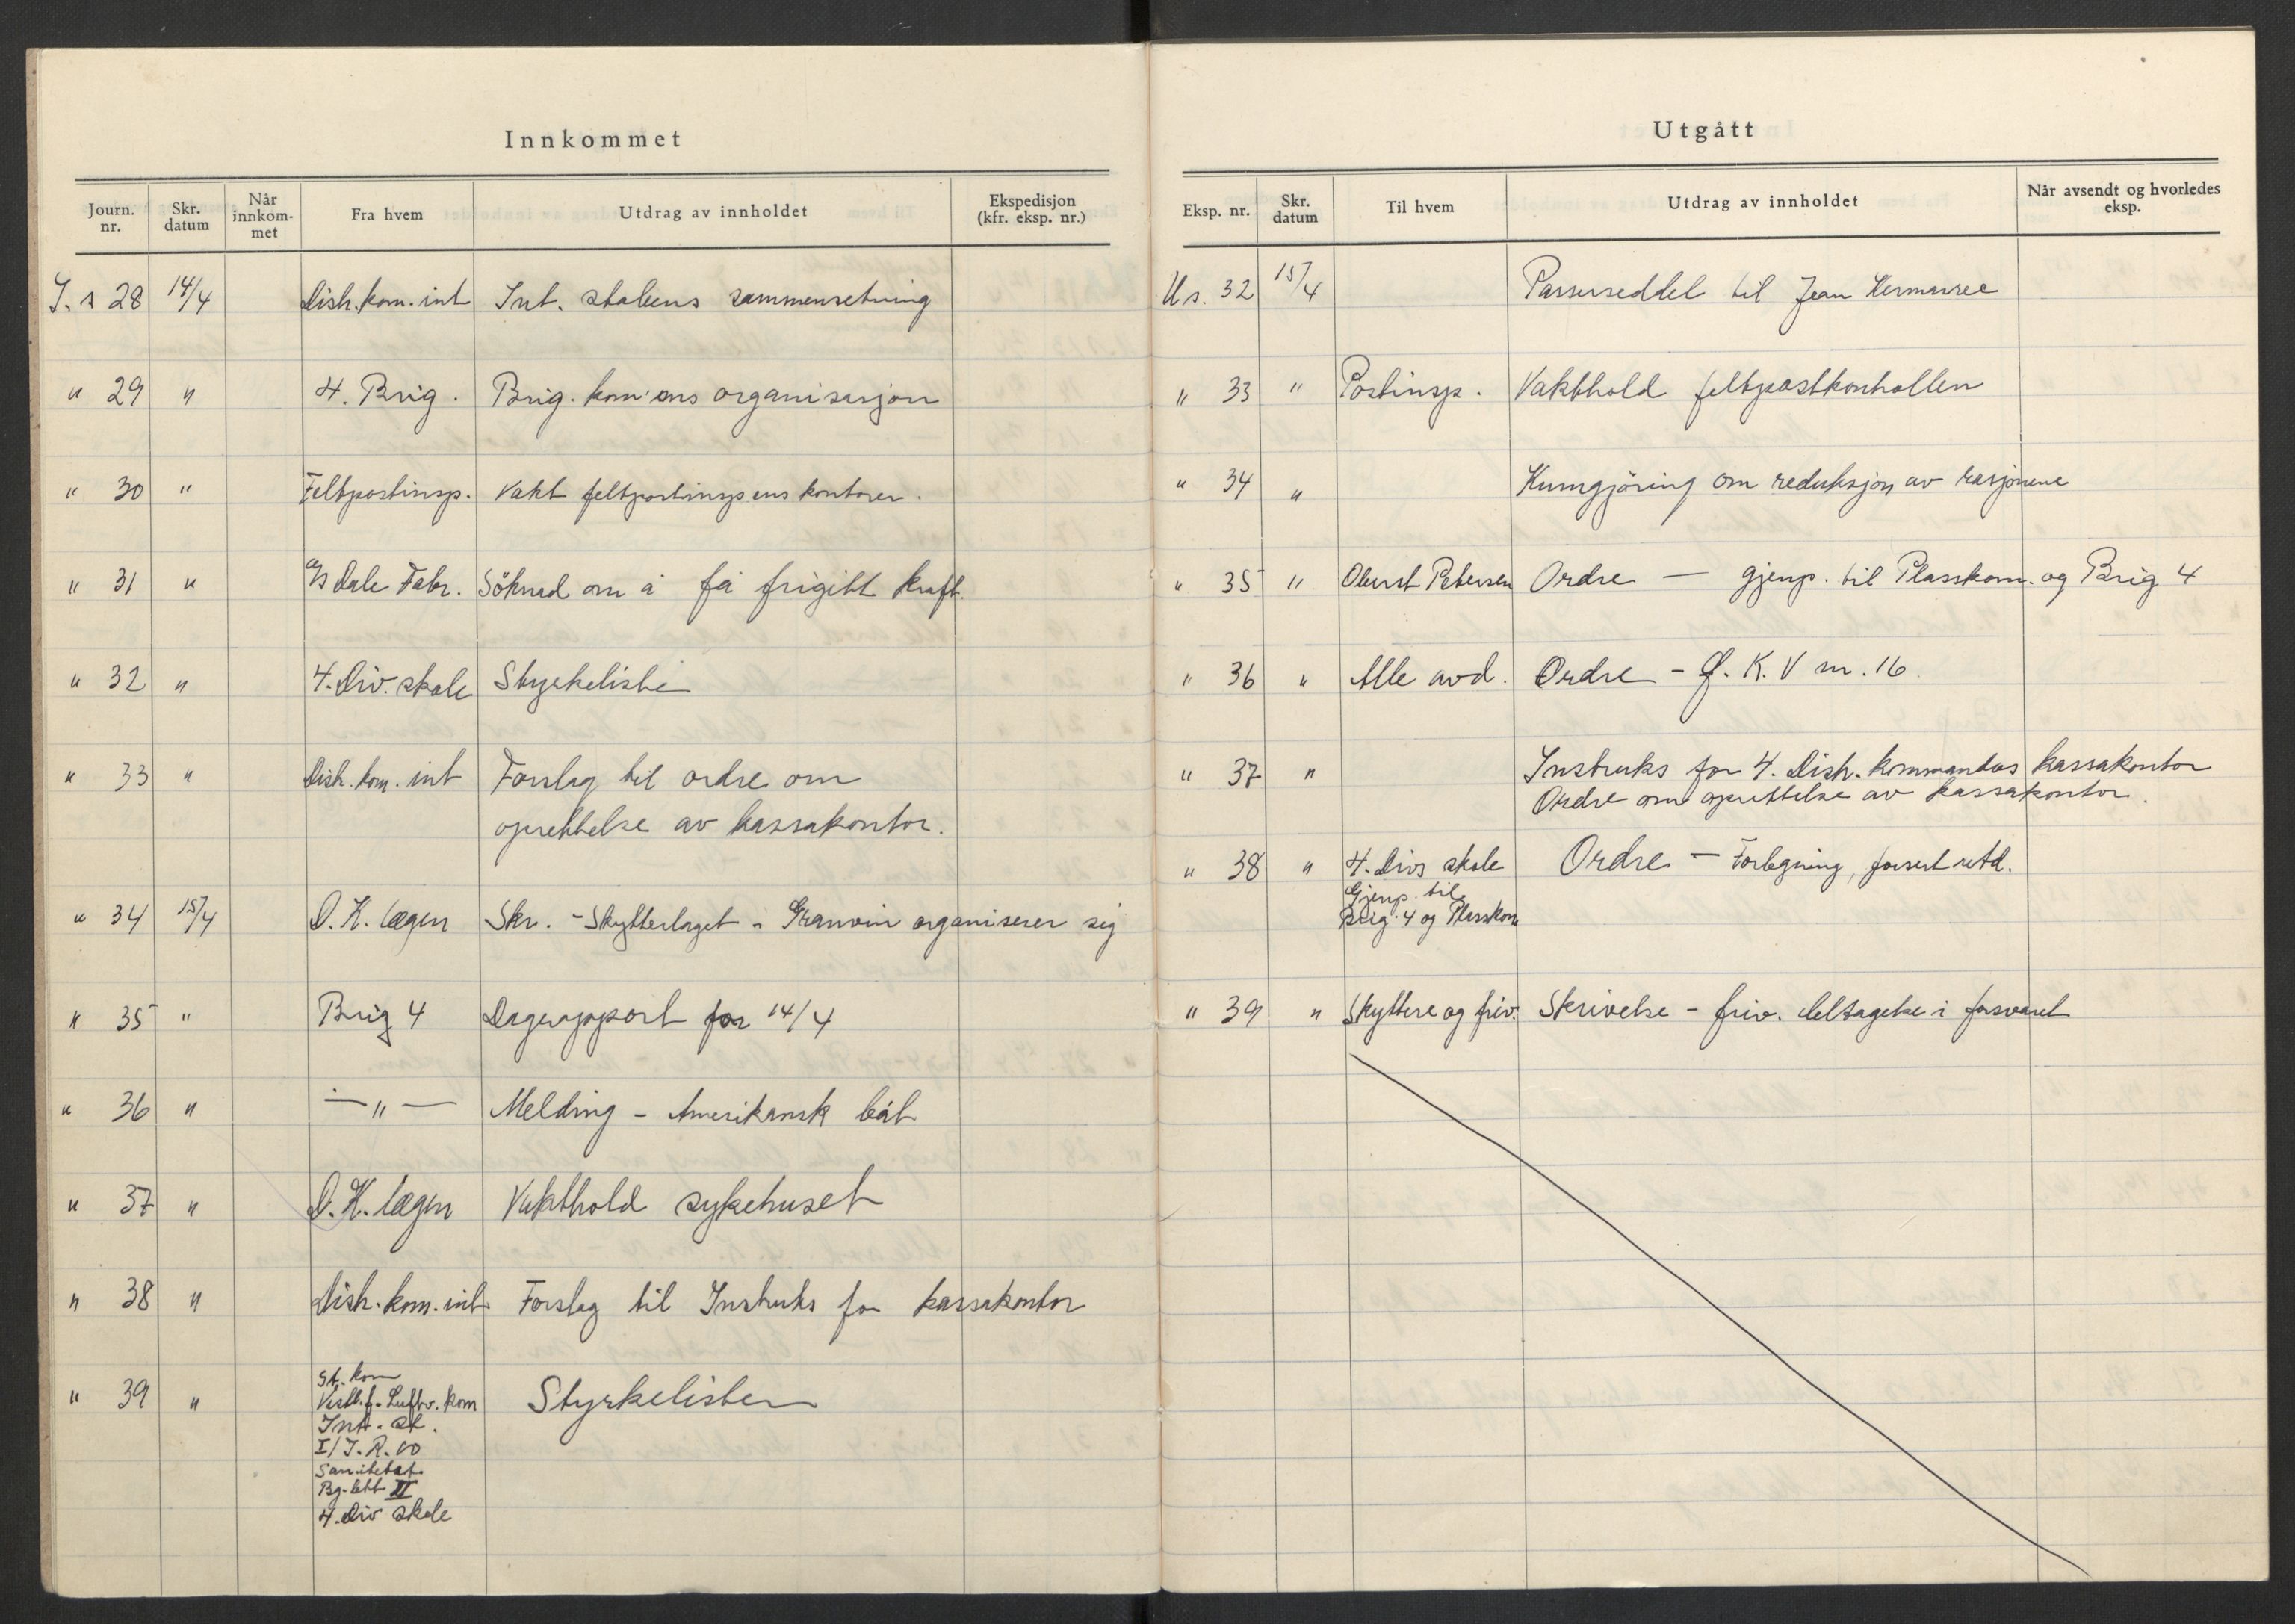 Innkommet
Journ. nr. Skr. datum Når innkommet Fra hvem Utdrag av innholdet Ekspedisjon (kfr. eksp. nr.)
J. s 28 14/4 Distr. kom. int Int. stabens sammensetning
" 29 " 4. Brig. Brig. kom'ens organisasjon
" 30 " Feltpostinsp. Vakt feltpostinspens kontorer.
" 31 " A/S Dale Fabr. Söknad om å få frigitt kraft.
" 32 " 4. Div. skole Styrkeliste
" 33 " Distr. kom. int Forslag til ordre om
oprettelse av kassakontor.
" 34 15/4 D. K. lægen Skr. - Skytterlaget - Granvin organiserer sig
" 35 " Brig 4 Dagrapport for 14/4
" 36 " — " — Melding - Amerikansk båt
" 37 " D. K. lægen Vakthold sykehuset
" 38 " Distr. kom. int. Forslag til Instruks for kassakontor
" 39 " St. kom Styrkelister
Vestl. f. Luftv. kom
Int. st.
I/I.R. 10
Sanitetst.
Bg. batt II
4. Div skole
Utgått
Eksp. nr. Skr. datum Til hvem Utdrag av innholdet Når avsendt og hvorledes eksp.
U s. 32 15/4 Passerseddel til Jean
" 33 " Postinsp. Vakthold feltpostkontrollen
" 34 " Kunngjöring om reduksjon av rasjonene
" 35 " Oberst Petersen Ordre — gjenp. til Plasskom. og Brig 4
" 36 " Alle avd. Ordre - Ø. K. V nr. 16
" 37 " Instruks for 4. Distr. kommandos kassakontor
Ordre om oprettelse av kassakontor.
" 38 " 4. Divs skole Ordre - Forlegning, forsert utd.
Gjenp. til
Brig. 4 og Plasskom
" 39 " Skyttere og friv. Skrivelse - friv. deltagelse i forsvaret